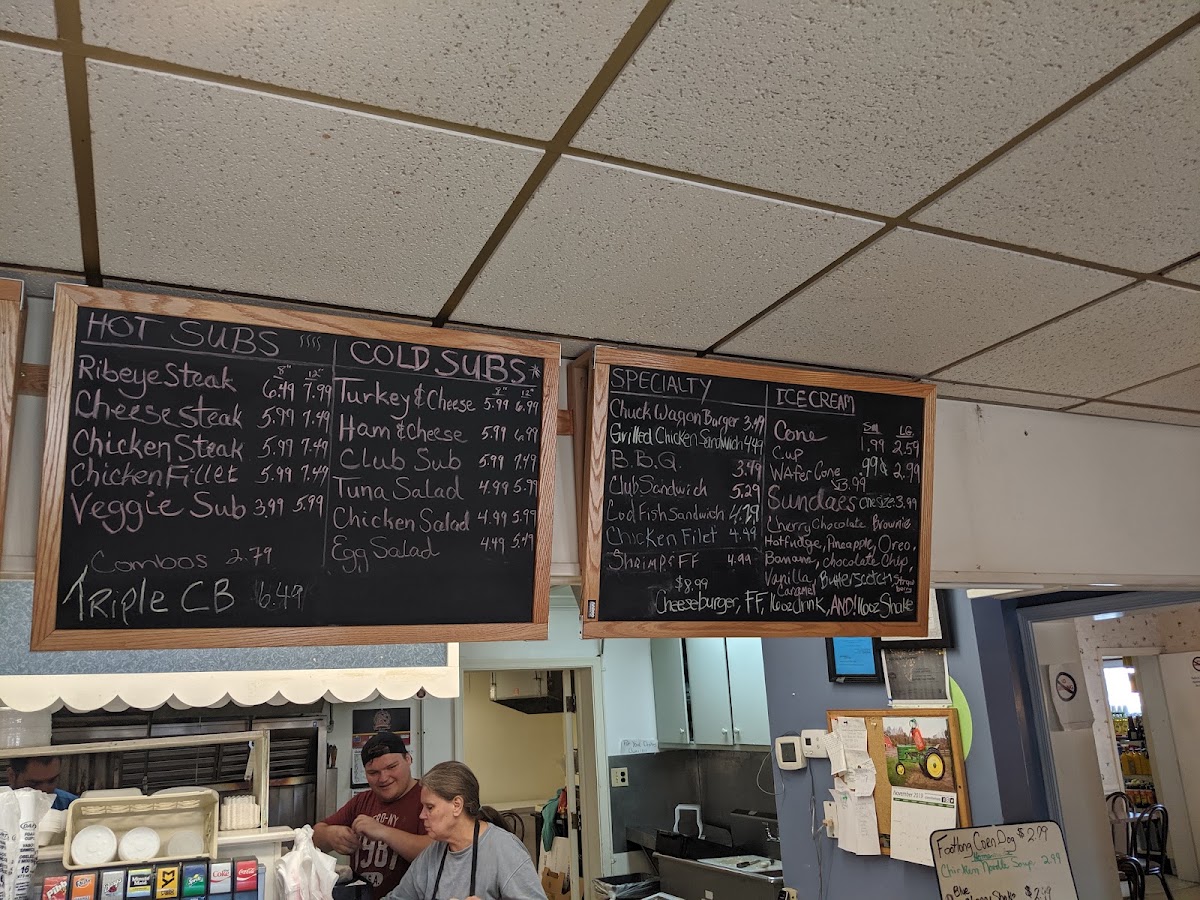 HOT SUBS
8" 12"
Ribeye Steak 6.49 7.99
Cheesesteak 5.99 7.49
Chicken Steak 5.99 7.49
Chicken Fillet 5.99 7.49
Veggie Sub 3.99 5.99
Combos 2.79
TRiple CB 6.49
COLD SUBS*
8" 12"
Turkey & Cheese 5.99 6.99
Ham & Cheese 5.99 6.99
Club Sub 5.99 7.49
Tuna Salad 4.99 5.99
Chicken Salad 4.99 5.99
Egg Salad 4.49 5.49
SPECIALTY
Chuck Wagon Burger 3.49
Grilled Chicken Sandwich 4.49
B.B.Q. 3.49
Club Sandwich 5.29
Cod Fish Sandwich 4.79
Chicken Filet 4.49
Shrimp & FF 4.99
ICE CREAM
Sm LG
Cone 1.99 2.59
Cup .99¢ 2.99
WAfer Cone
$3.99
Sundaes one size 3.99
Cherry Chocolate Brownie
Hotfudge, Pineapple, Oreo,
Banana, Chocolate Chip,
Vanilla, Butterscotch, Straw
Caramel berry
$8.99
Cheeseburger, FF, 16oz drink, AND! 16oz Shake
November 2019
Footlong Corn Dog $2.99
Home
Chicken Noodle Soup 2.99
Blue
$2.99
Coke
Coca-Cola